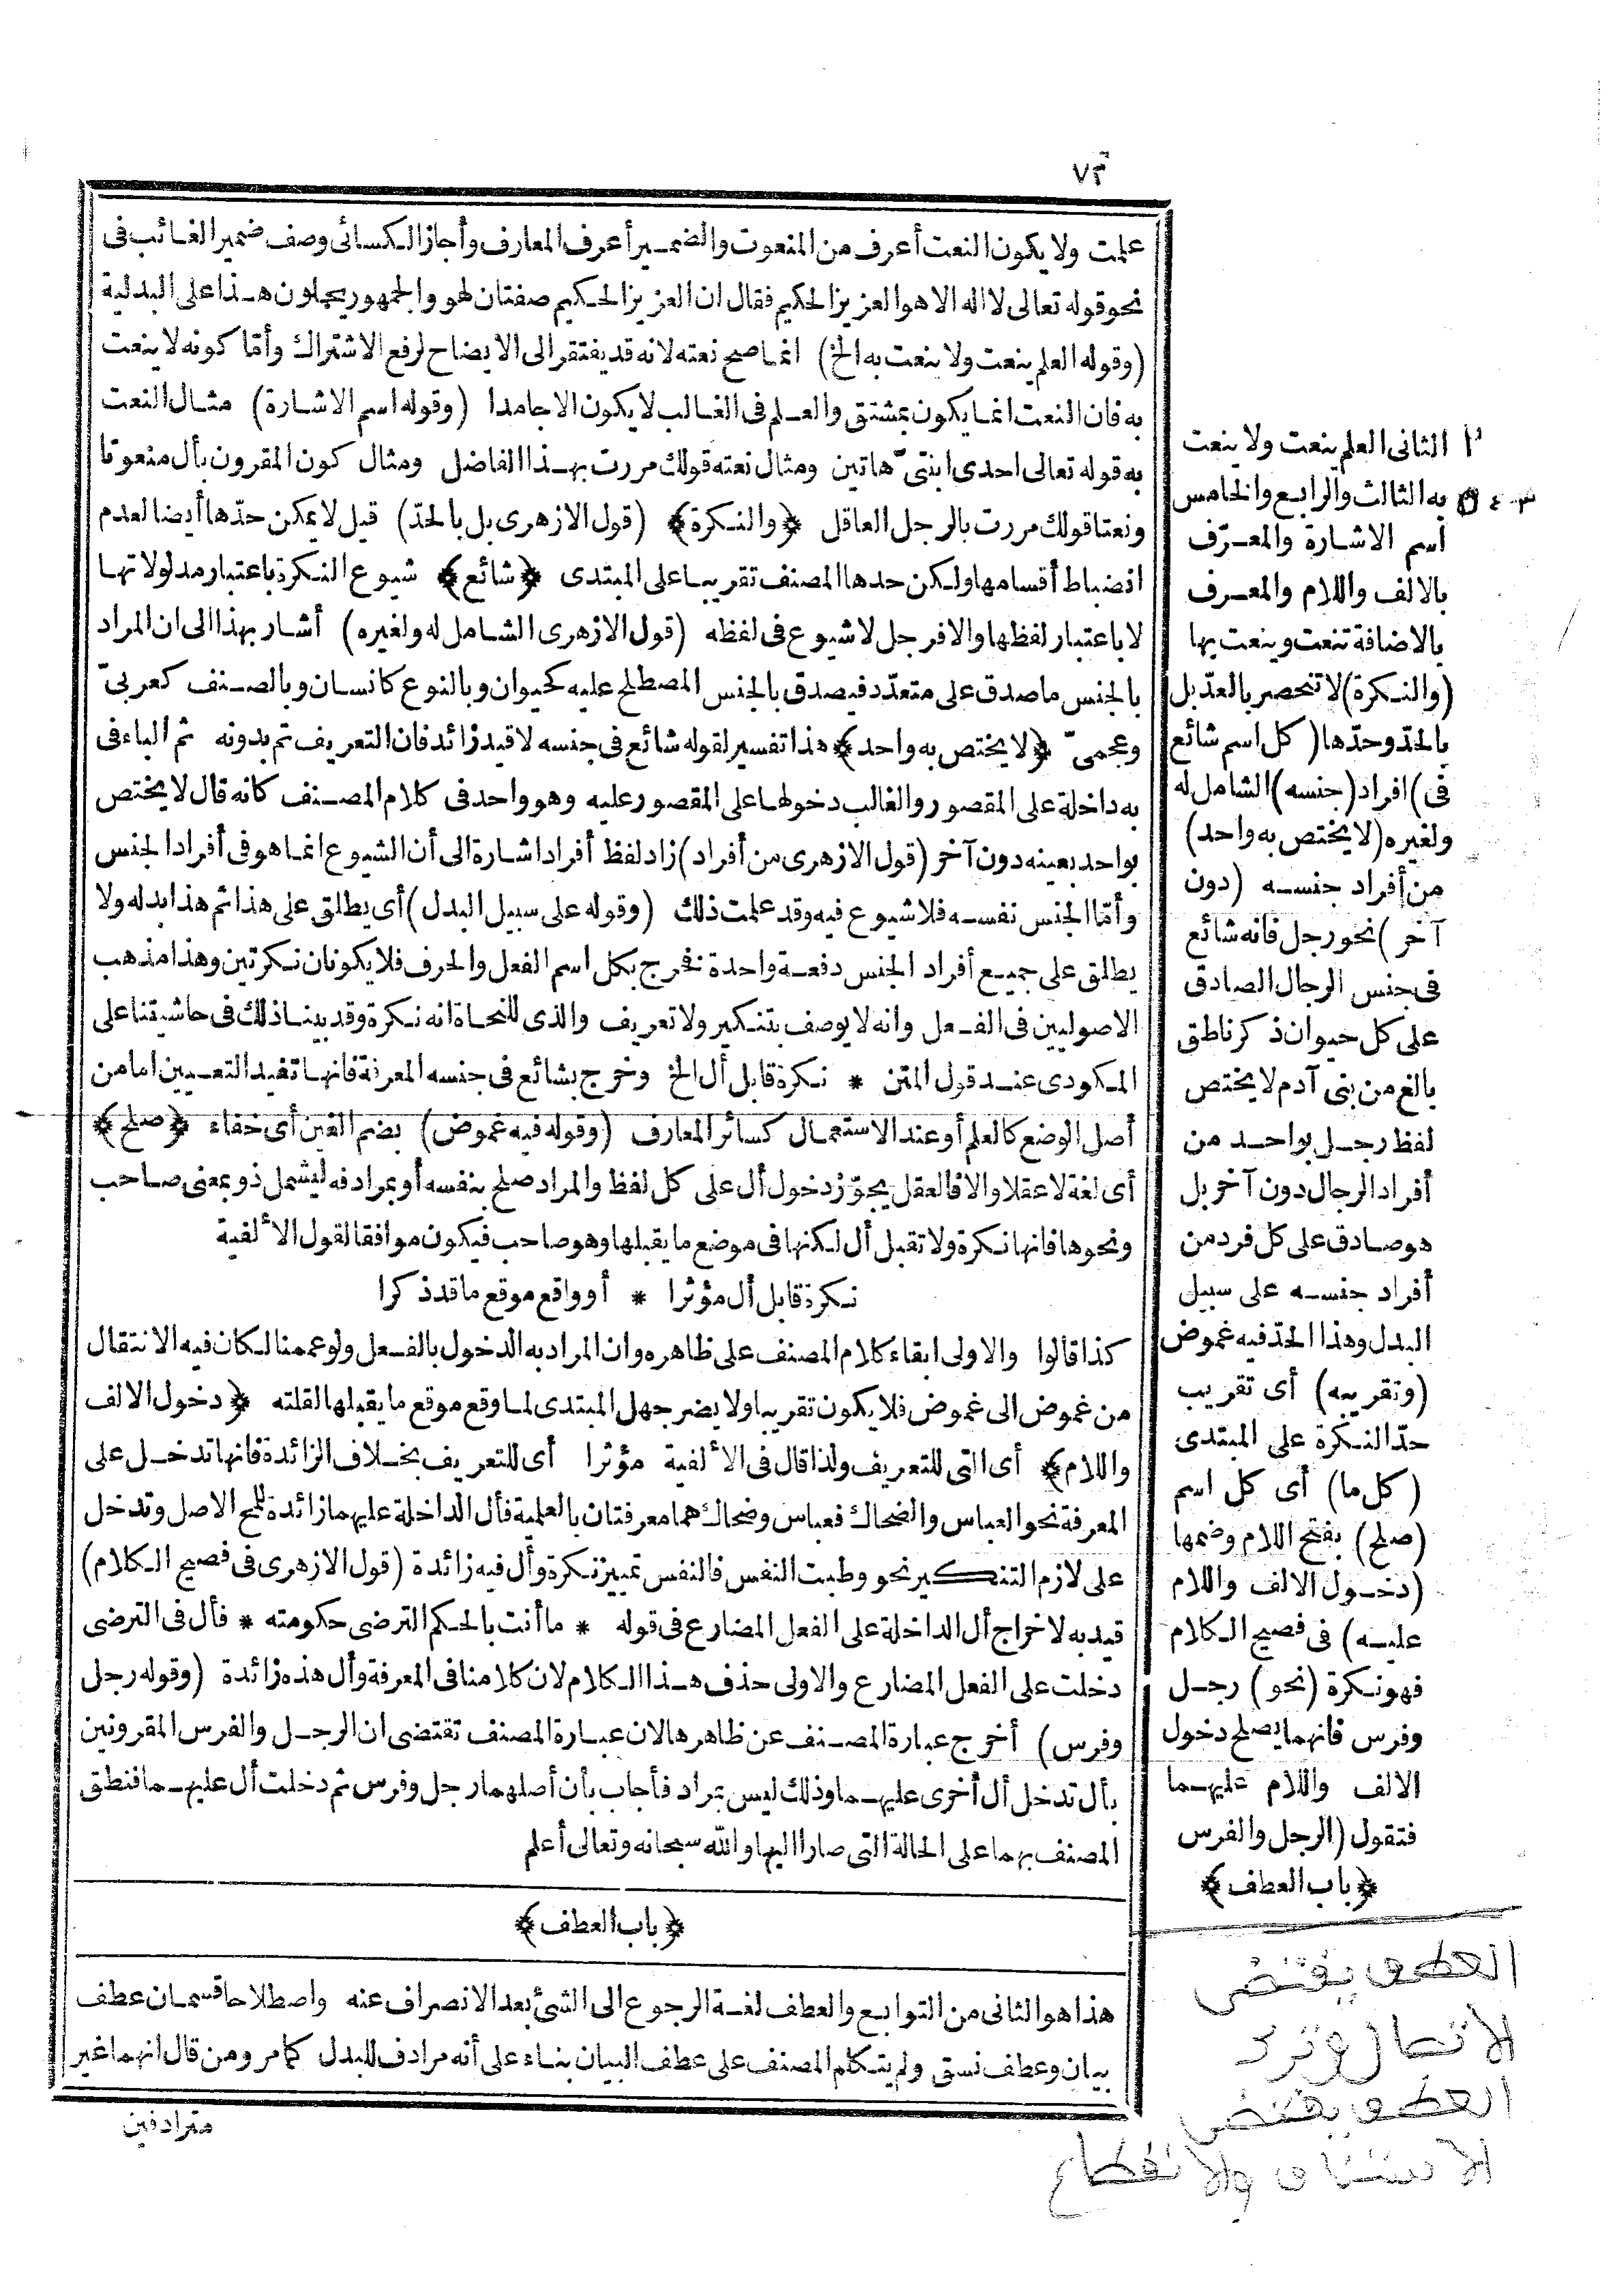 ٧٣
علمت ولا يكون النعت أعرف من المنعوت والضمير أعرف المعارف وأجاز الكسائى وصف ضمير الغائب فى
نحو قوله تعالى لا اله الا هو العزيز الحكيم فقال ان العزيز الحكيم صفتان لهو والجمهور يجعلون هذا على البدلية
(وقوله العلم ينعت ولا ينعت به الخ) انما صح نعته لانه قد يفتقر الى الايضاح لرفع الاشتراك وأمّا كونه لا ينعت
به فان النعت انما يكون بمشتق والعلم فى الغالب لا يكون الا جامدا (وقوله اسم الاشارة) مثال النعت
به قوله تعالى احدى ابنتىّ هاتين ومثال نعته قولك مررت بهذا الفاضل ومثال كون المقرون بأل منعوتا
ونعتا قولك مررت بالرجل العاقل ﴿والنكرة﴾ (قول الازهرى بل بالحدّ) قيل لا يمكن حدّها أيضا لعدم
انضباط أقسامها ولكن حدها المصنف تقريبا على المبتدى ﴿شائع﴾ شيوع النكرة باعتبار مدلولاتها
لا باعتبار لفظها والا فرجل لا شيوع فى لفظه (قول الازهرى الشامل له ولغيره) أشار بهذا الى ان المراد
بالجنس ما صدق على متعدّد فيصدق بالجنس المصطلح عليه كحيوان وبالنوع كانسان وبالصنف كعربىّ
وعجمىّ ﴿لا يختص به واحد﴾ هذا تفسير لقوله شائع فى جنسه لا قيد زائد فان التعريف تم بدونه ثم الباء فى
به داخلة على المقصور والغالب دخولها على المقصور عليه وهو واحد فى كلام المصنف كانه قال لا يختص
بواحد بعينه دون آخر (قول الازهرى من أفراد) زاد لفظ أفراد اشارة الى أن الشيوع انما هو فى أفراد الجنس
وأمّا الجنس نفسه فلا شيوع فيه وقد علمت ذلك (وقوله على سبيل البدل) أى يطلق على هذا ثم هذا بدله ولا
يطلق على جميع أفراد الجنس دفعة واحدة فخرج بكل اسم الفعل والحرف فلا يكونان نكرتين وهذا مذهب
الاصوليين فى الفعل وانه لا يوصف بتنكير ولا تعريف والذى للنحاة انه نكرة وقد بينا ذلك فى حاشيتنا على
المكودى عند قول المتن * نكرة قابل أل الخ وخرج بشائع فى جنسه المعرفة فانها تفيد التعيين اما من
أصل الوضع كالعلم أو عند الاستعمال كسائر المعارف (وقوله فيه غموض) بضم الغين أى خفاء ﴿صلح﴾
أى لغة لا عقلا والا فالعقل يجوّز دخول أل على كل لفظ والمراد صلح بنفسه أو بمرادفه ليشمل ذو بمعنى صاحب
ونحوها فانها نكرة ولا تقبل أل لكنها فى موضع ما يقبلها وهو صاحب فيكون موافقا لقول الألفية
نكرة قابل أل مؤثرا * أو واقع موقع ما قد ذكرا
كذا قالوا والاولى ابقاء كلام المصنف على ظاهره وان المراد به الدخول بالفعل ولو عممنا لكان فيه الانتقال
من غموض الى غموض فلا يكون تقريبا ولا يضر جهل المبتدى لما وقع موقع ما يقبلها لقلته ﴿دخول الالف
واللام﴾ أى التى للتعريف ولذا قال فى الألفية مؤثرا أى للتعريف بخلاف الزائدة فانها تدخل على
المعرفة نحو العباس والضحاك فعباس وضحاك هما معرفتان بالعلمية فأل الداخلة عليهما زائدة للمح الاصل وتدخل
على لازم التنكير نحو وطبت النفس فالنفس تمييز نكرة وأل فيه زائدة (قول الازهرى فى فصيح الكلام)
قيد به لاخراج أل الداخلة على الفعل المضارع فى قوله * ما أنت بالحكم الترضى حكومته * فأل فى الترضى
دخلت على الفعل المضارع والاولى حذف هذا الكلام لان كلامنا فى المعرفة وأل هذه زائدة (وقوله رجل
وفرس) أخرج عبارة المصنف عن ظاهرها لان عبارة المصنف تقتضى ان الرجل والفرس المقرونين
بأل تدخل أل أخرى عليهما وذلك ليس بمراد فأجاب بأن أصلهما رجل وفرس ثم دخلت أل عليهما فنطق
المصنف بهما على الحالة التى صارا اليها والله سبحانه وتعالى أعلم
﴿باب العطف﴾
هذا هو الثانى من التوابع والعطف لغة الرجوع الى الشئ بعد الانصراف عنه واصطلاحا قسمان عطف
بيان وعطف نسق ولم يتكلم المصنف على عطف البيان بناء على أنه مرادف للبدل كما مر ومن قال انهما غير
مترادفين
٢ الثانى العلم ينعت ولا ينعت
٣ ٤ ٥ به الثالث والرابع والخامس
اسم الاشارة والمعرّف
بالالف واللام والمعرف
بالاضافة تنعت وينعت بها
(والنكرة) لا تنحصر بالعدّ بل
بالحدّ وحدّها (كل اسم شائع
فى) افراد (جنسه) الشامل له
ولغيره (لا يختص به واحد)
من أفراد جنسه (دون
آخر) نحو رجل فانه شائع
فى جنس الرجال الصادق
على كل حيوان ذكر ناطق
بالغ من بنى آدم لا يختص
لفظ رجل بواحد من
أفراد الرجال دون آخر بل
هو صادق على كل فرد من
أفراد جنسه على سبيل
البدل وهذا الحدّ فيه غموض
(وتقريبه) أى تقريب
حدّ النكرة على المبتدى
(كل ما) أى كل اسم
(صلح) بفتح اللام وضمها
(دخول الالف واللام
عليه) فى فصيح الكلام
فهو نكرة (نحو) رجل
وفرس فانهما يصلح دخول
الالف واللام عليهما
فتقول (الرجل والفرس
﴿باب العطف﴾
العطف يقتضى
الاتصال وترك
العطف يقتضى
الاستئناف والانقطاع